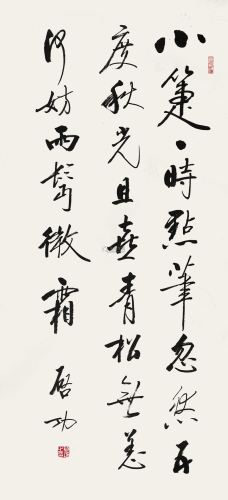 小箑、時點筆忽然五
度秋光且喜青松無恙
何妨兩鬢微霜
啓功